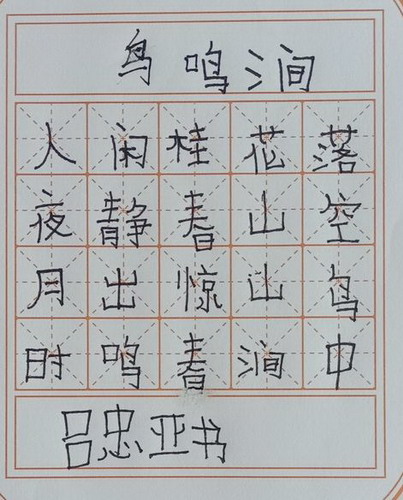 鸟鸣涧
人闲桂花落
夜静春山空
月出惊山鸟
时鸣春涧中
吕忠亚书